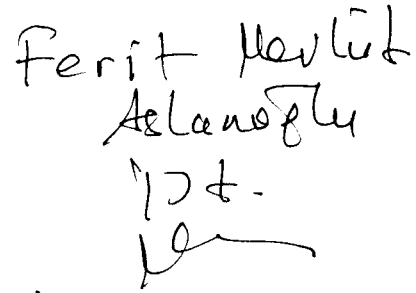 Ferit Mevlüt
Aslanoğlu
İst.